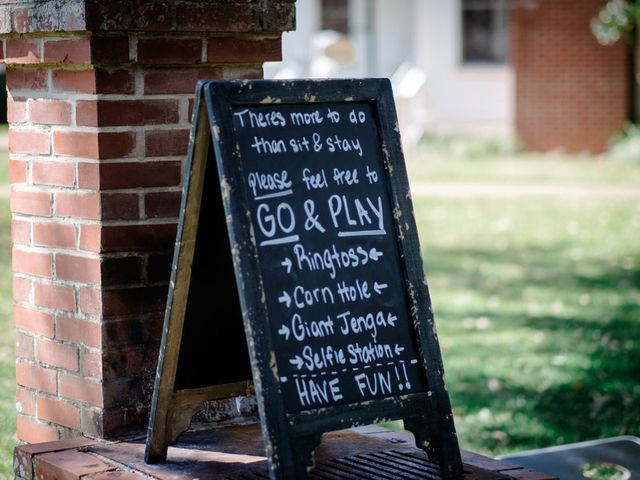 Theres more to do
than sit & stay
please feel free to
GO & PLAY
→ Ringtoss ←
→ Corn Hole ←
→ Giant Jenga ←
→ Selfie Station ←
HAVE FUN!!